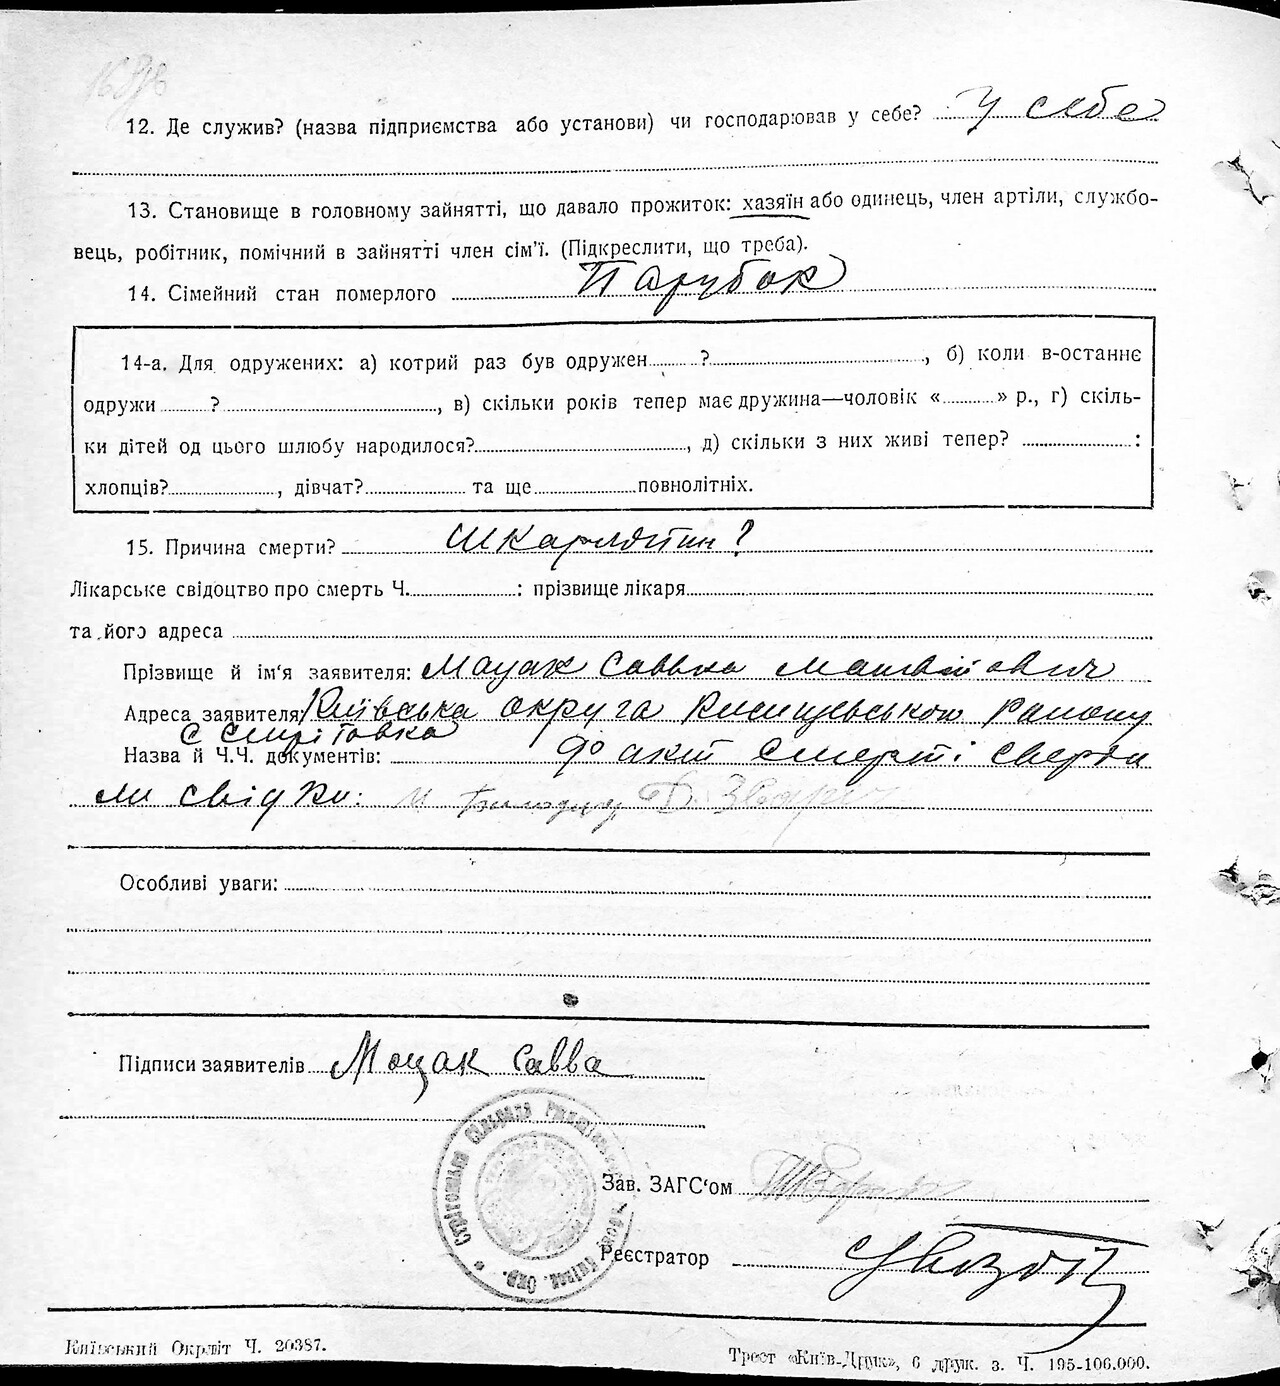 12. Де служив? (назва підприємства або установи) чи господарював у себе? У себе
13. Становище в головному зайнятті, що давало прожиток: хазяїн або одинець, член артіли, службо-
вець, робітник, помічний в зайнятті член сім'ї. (Підкреслити, що треба).
14. Сімейний стан померлого Парубок
14-а. Для одружених: а) котрий раз був одружен ?, б) коли в-останнє
одружи ?, в) скільки років тепер має дружина—чоловік « » р., г) скіль-
ки дітей од цього шлюбу народилося?, д) скільки з них живі тепер? :
хлопців?, дівчат? та ще повнолітніх.
15. Причина смерти? Шкарлятин?
Лікарське свідоцтво про смерть Ч. : прізвище лікаря
та його адреса
Прізвище й ім'я заявителя: Моцак Савва
Адреса заявителя Київська округа району
Назва й Ч.Ч. документів: факт смерті сверди
ли свідки: Д. Зварич
Особливі уваги:
Підписи заявителів Моцак Савва
Зав. ЗАГС'ом
Реєстратор
Київський Окрліт Ч. 20387.
Трест «Київ-Друк», 6 друк. з. Ч. 195-100.000.